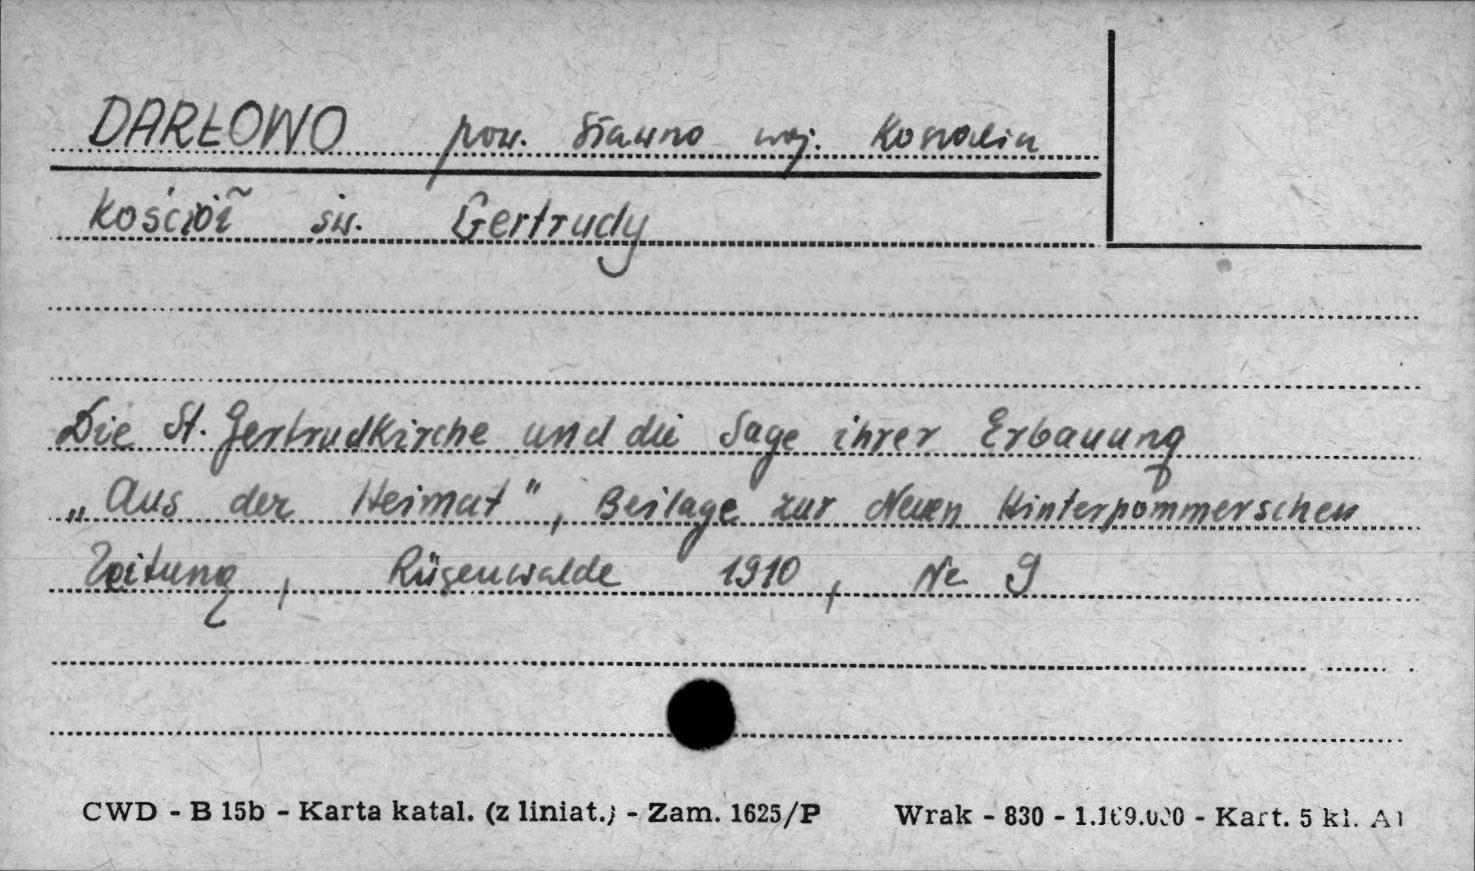 DARŁOWO pow. Sławno woj. Koszalin
kościół św. Gertrudy
Die St. Gertrudkirche und die Sage ihrer Erbauung
„Aus der Heimat", Beilage zur Neuen Hinterpommerschen
Zeitung, Rügenwalde 1910, Nr 9
CWD - B 15b - Karta katal. (z liniat.) - Zam. 1625/P Wrak - 830 - 1.169.000 - Kart. 5 kl. A1